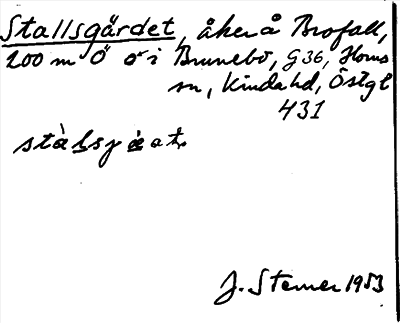 Stallsgärdet, åker å Brofall,
200 m Ö o i Brunebo, G36, Horns
sn, Kinda hd, Östgl
431
J. Sterner 1953